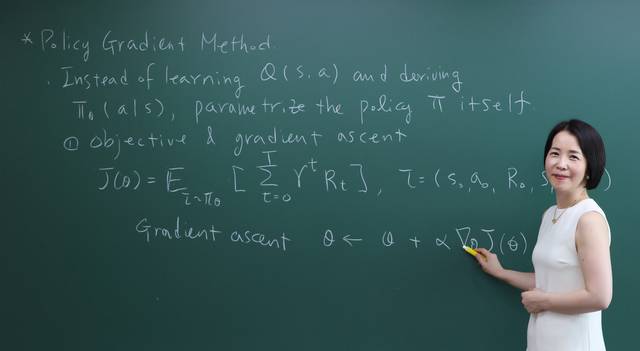 * Policy Gradient Method.
. Instead of learning Q(s,a) and deriving
π_θ(a|s), parametrize the policy π itself.
① objective & gradient ascent
J(θ) = E_{τ~π_θ} [ Σ_{t=0}^{T} γ^t R_t ], τ = (s_0, a_0, R_0, s
Gradient ascent θ ← θ + α ∇_θ J(θ)